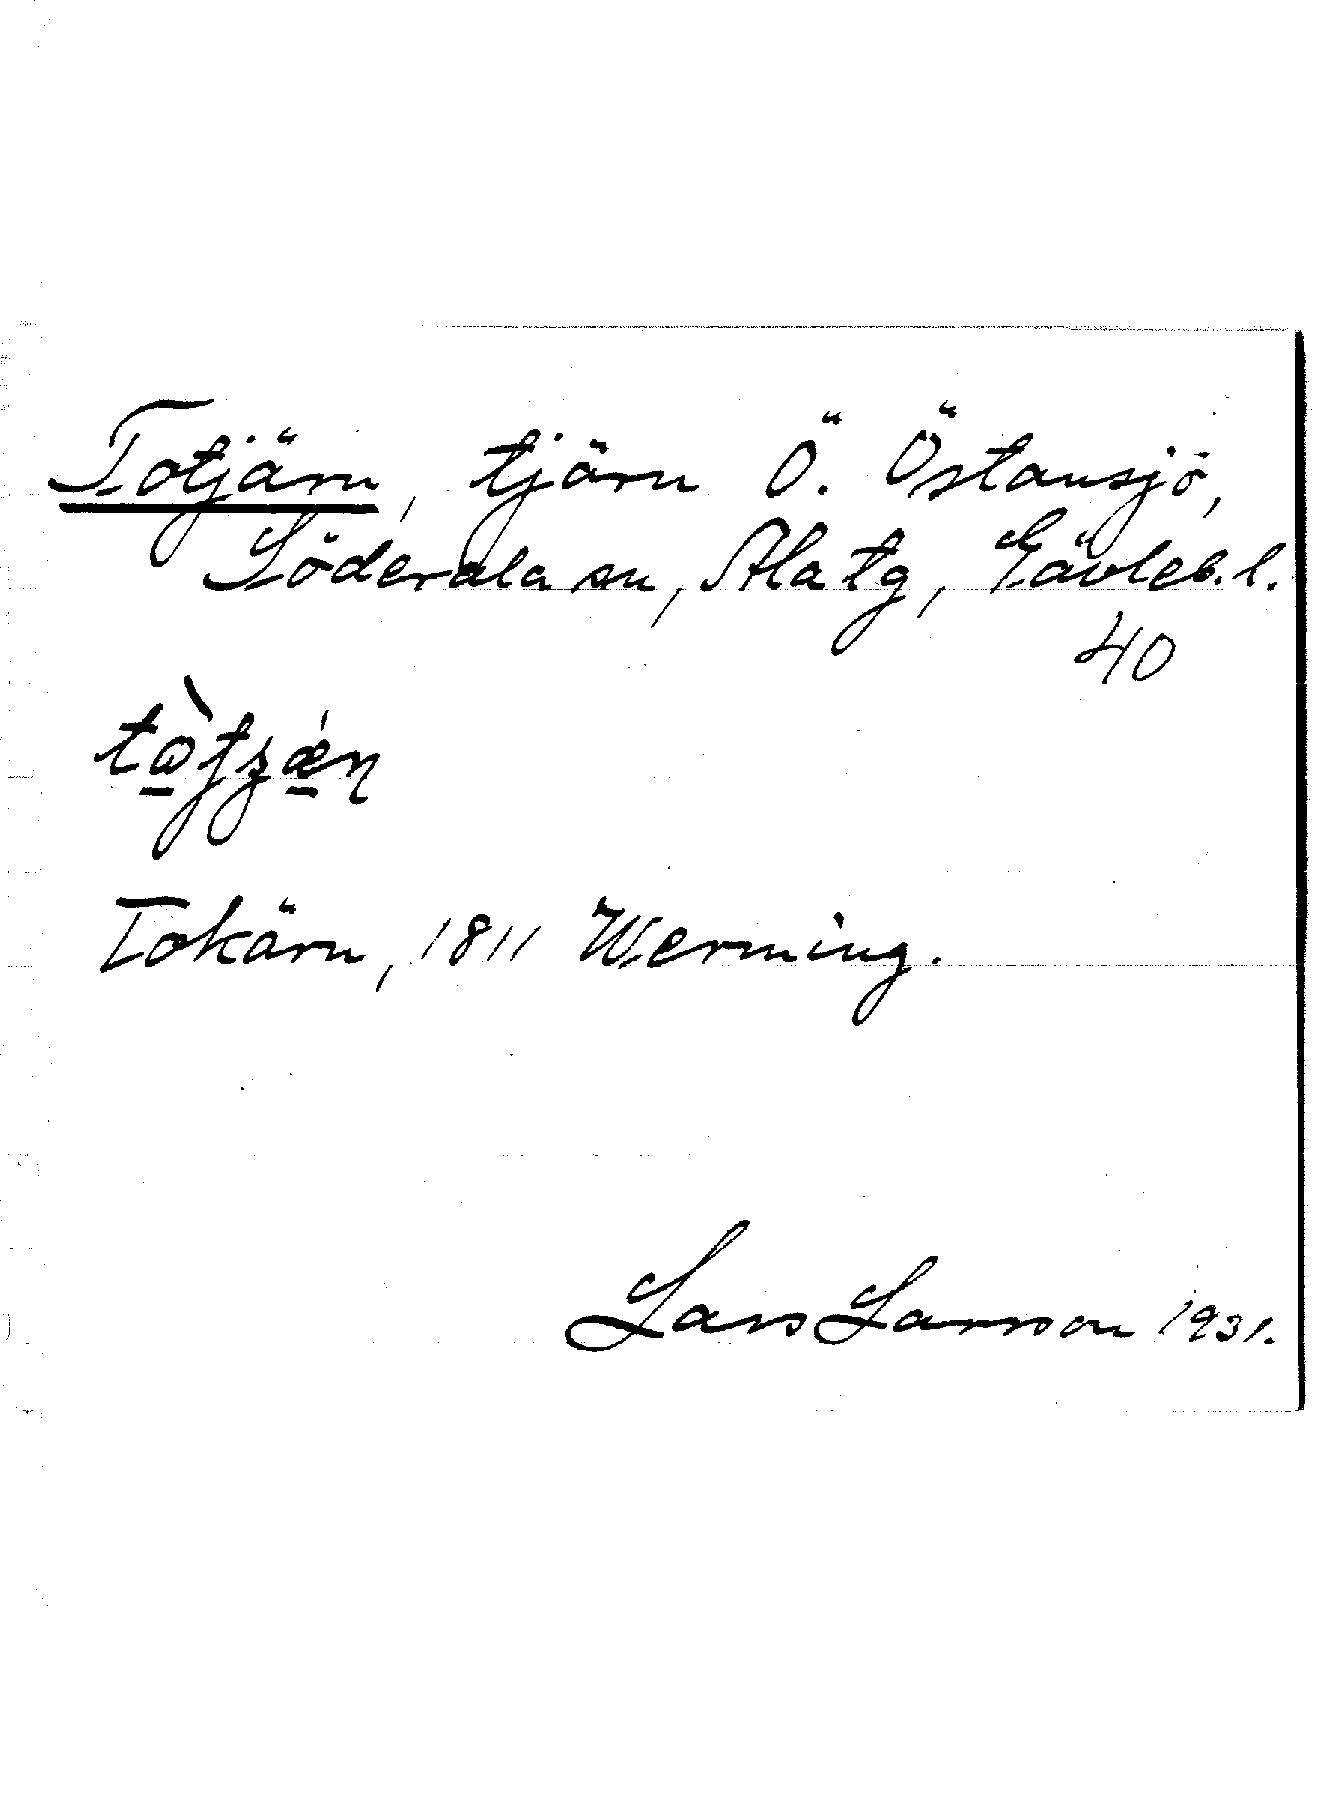 Totjärn, tjärn Ö. Östansjö,
Söderala sn, Ala tg, Gävleb. l.
40
Tokärn, 1811 Werming.
Lars Larsson 1931.